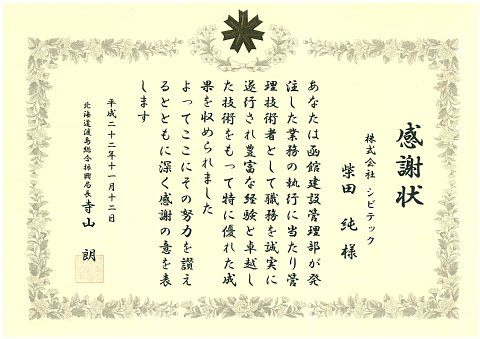 感謝状
株式会社 シビテック
柴田 純 様
あなたは函館建設管理部が発
注した業務の執行に当たり管
理技術者として職務を誠実に
遂行され豊富な経験と卓越し
た技術をもって特に優れた成
果を収められました
よってここにその努力を讃え
るとともに深く感謝の意を表
します
平成二十二年十一月十二日
北海道渡島総合振興局長 寺山 朗